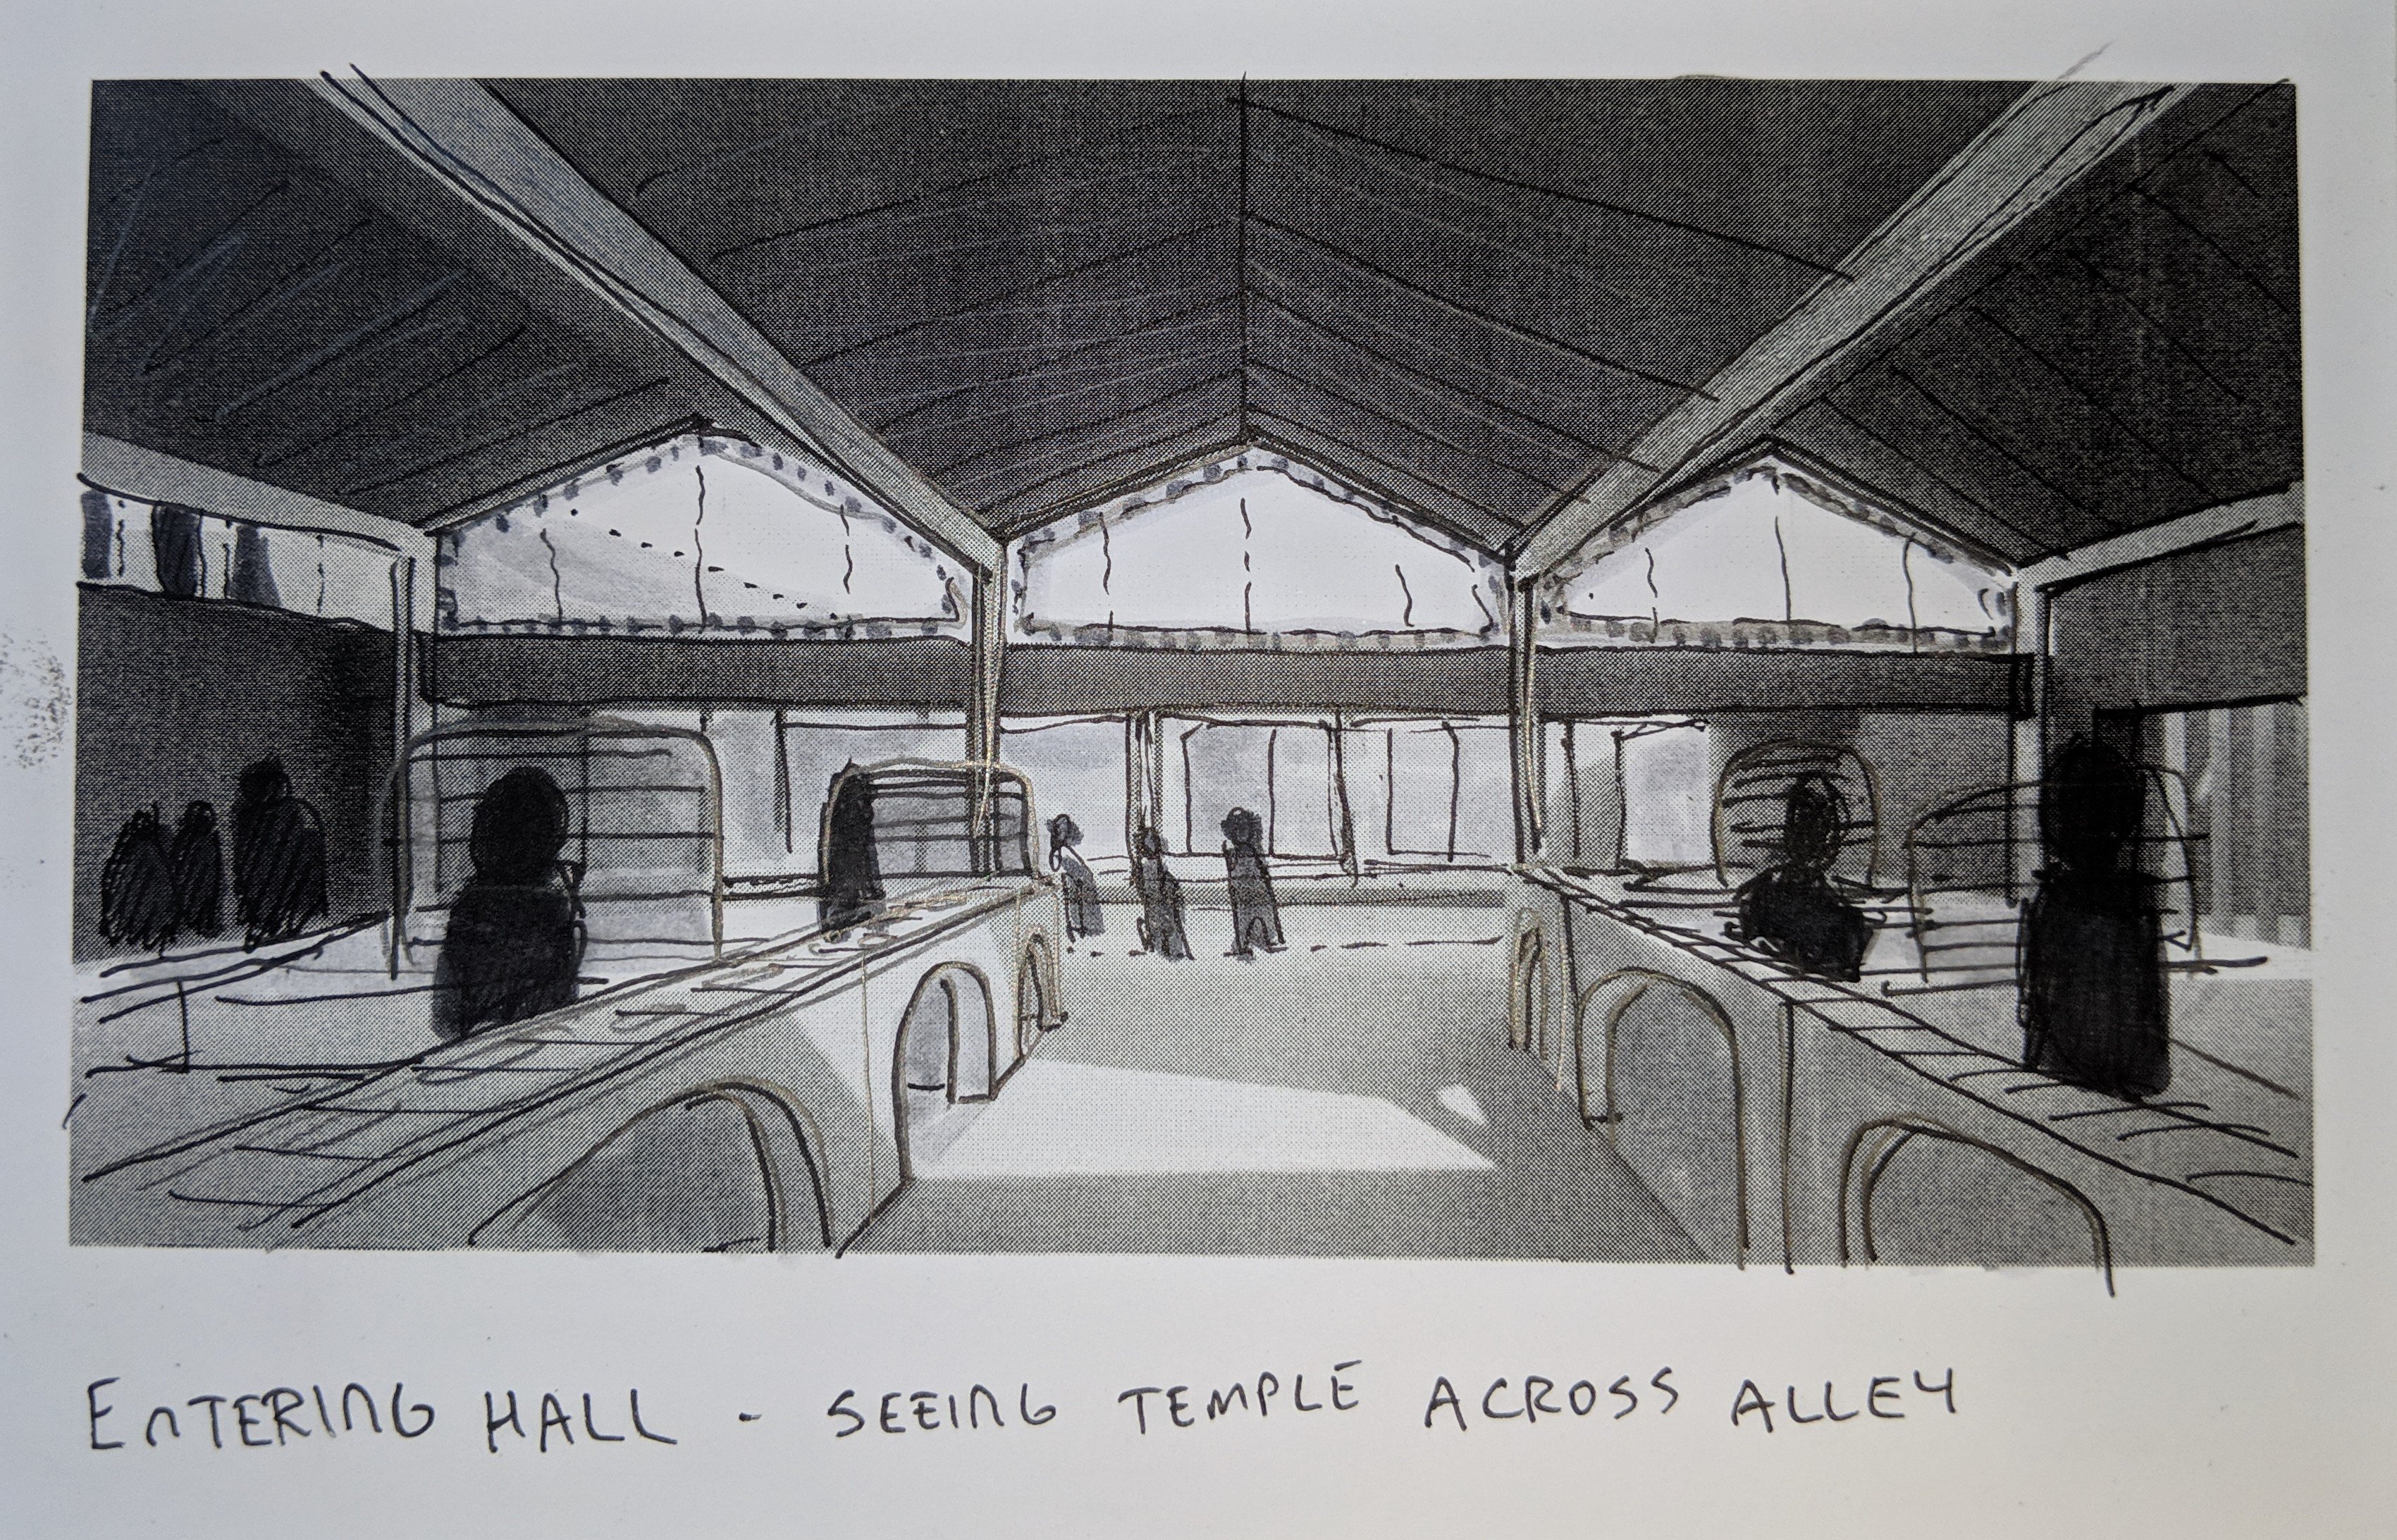 ENTERING HALL - SEEING TEMPLE ACROSS ALLEY